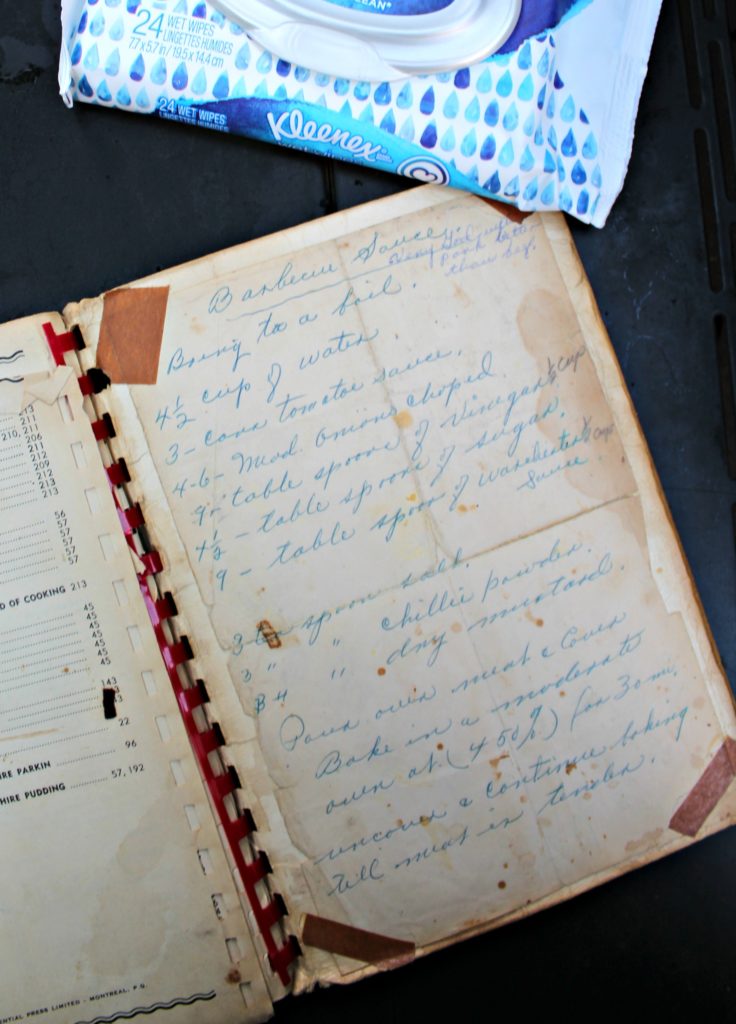 CLEAN*
24 WET WIPES
LINGETTES HUMIDES
7.7 x 5.7 in / 19.5 x 14.4 cm
24 WET WIPES
LINGETTES HUMIDES
Kleenex
Barbecue Sauce.
Very good with
pork better
than
Bring to a boil.
4 1/2 cup of water.
3 - cans tomatoe sauce.
4-6 - Med. Onions choped.
9 - table spoons of vinegar 1/2 cup
4 1/2 - table spoons of sugar.
9 - table spoon of Worchester 1/2 cup
Sauce.
3 spoon salt.
3 " " chillie powder.
4 " dry mustard.
Pour over meat & Cover
Bake in a moderate
oven at (450°) for 30 mi.
uncover & continue baking
till meat is tender.
213
211
210, 211
206
212
212
209
212
213
56
57
57
57
57
D OF COOKING 213
45
45
45
45
45
143
43
22
IRE PARKIN 96
HIRE PUDDING 57, 192
ENTIAL PRESS LIMITED - MONTREAL, P.Q.